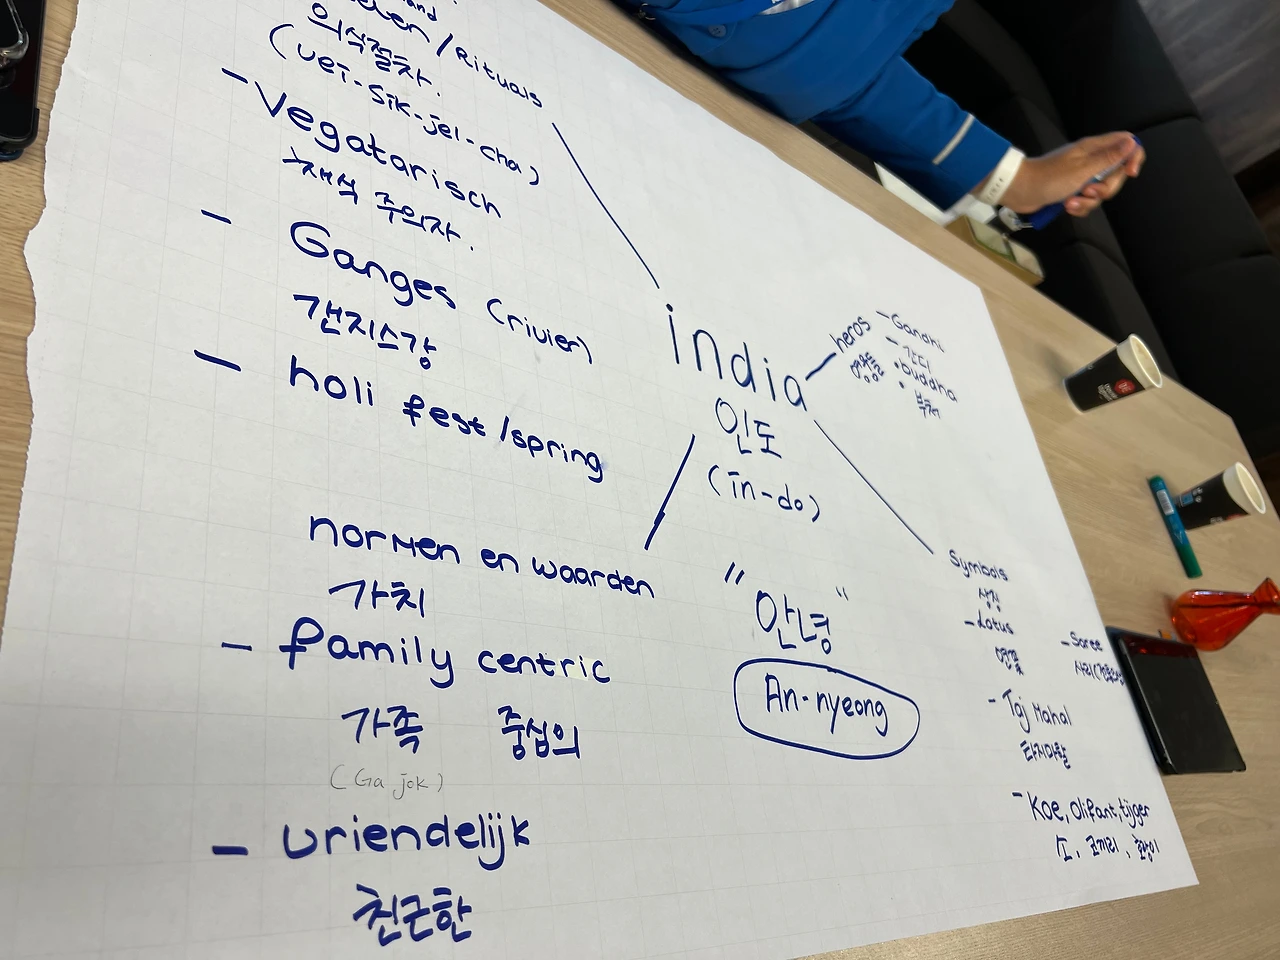 /Rituals
의식절차.
(uei-Sik-jel-cha)
- Vegatarisch
채식 주의자.
- Ganges (rivier)
갠지스강
- holi fest/spring
india
인도
(in-do)
heros
영웅들
- Gandhi
- 간디
• buddha
• 부처
normen en waarden
가치
- family centric
가족 중심의
(Ga jok)
- vriendelijk
친근한
"안녕"
An-nyeong
Symbols
상징
- Lotus
연꽃
- Saree
- Taj Mahal
타지마할
- Koe, olifant, tijger
소, 코끼리, 호랑이